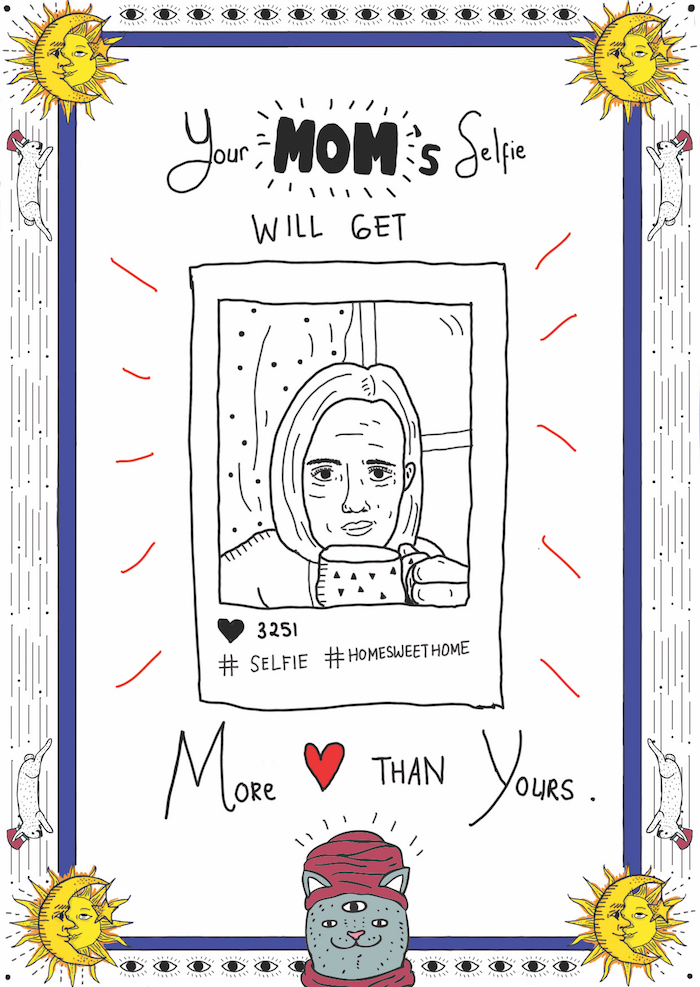 Your MOM's Selfie
WILL GET
3251
# SELFIE #HOMESWEETHOME
MORe ♥ THAN YOURS.